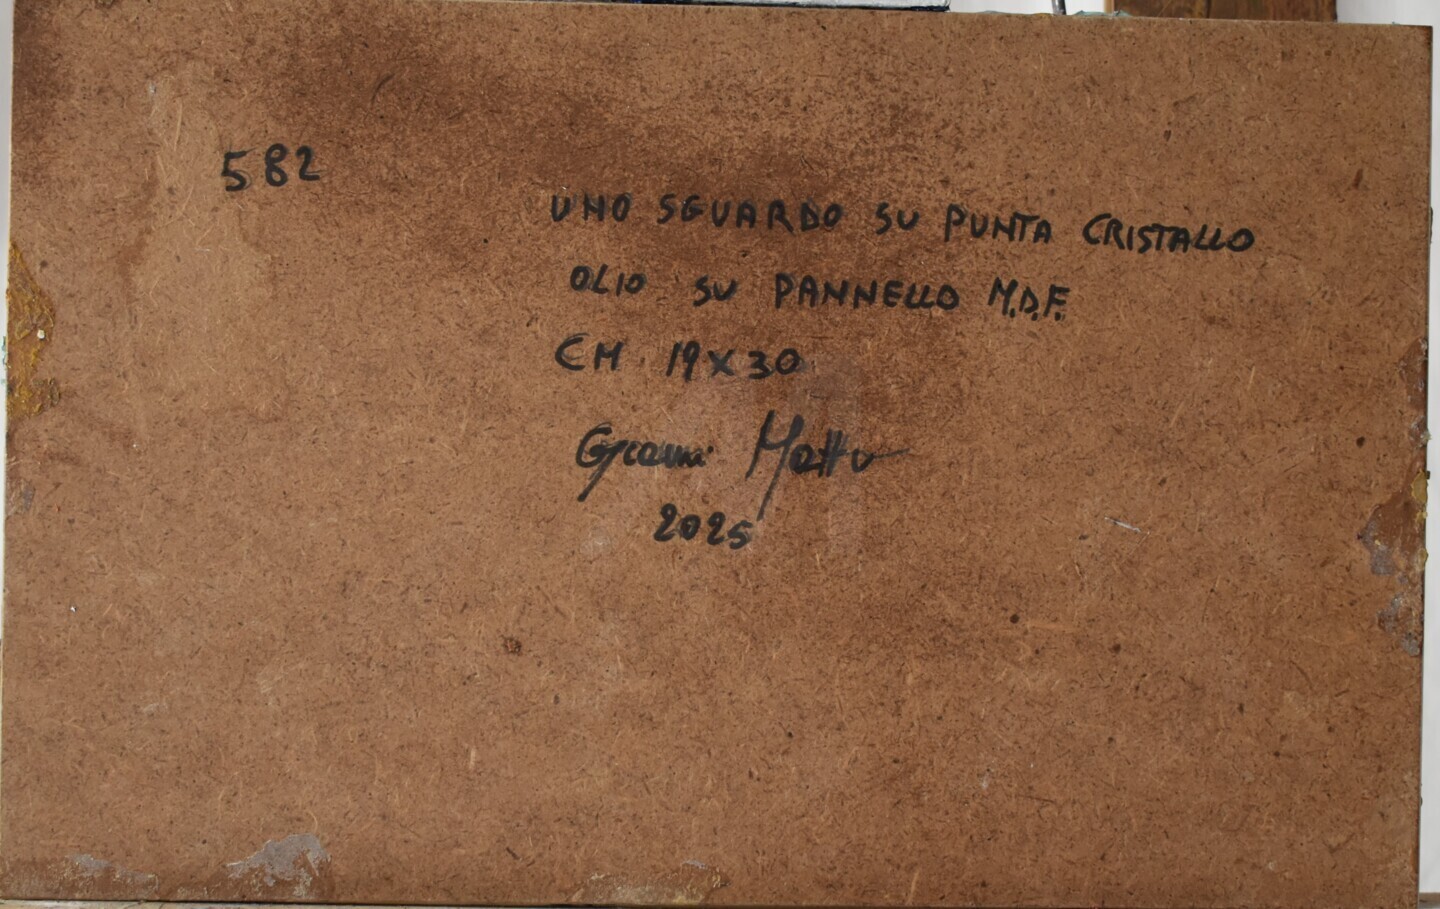 582
UNO SGUARDO SU PUNTA CRISTALLO
OLIO SU PANNELLO M.D.F.
CM 19X30
Giovanni Mattu
2025